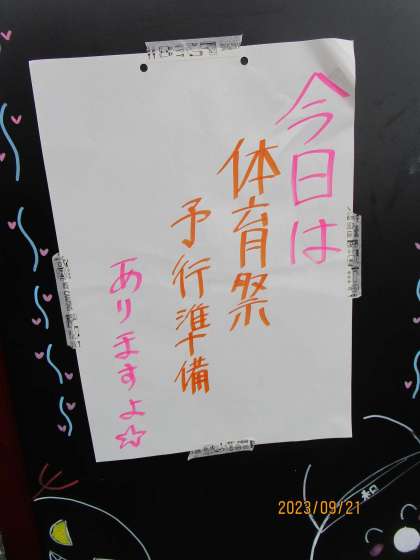 今日は
体育祭
予行準備
ありますよ☆
和
2023/09/21